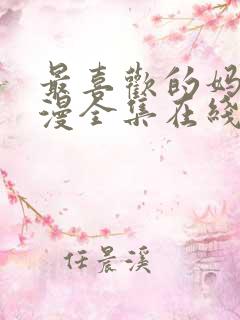 最喜歡的妈
漫全集在綫
任晨溪